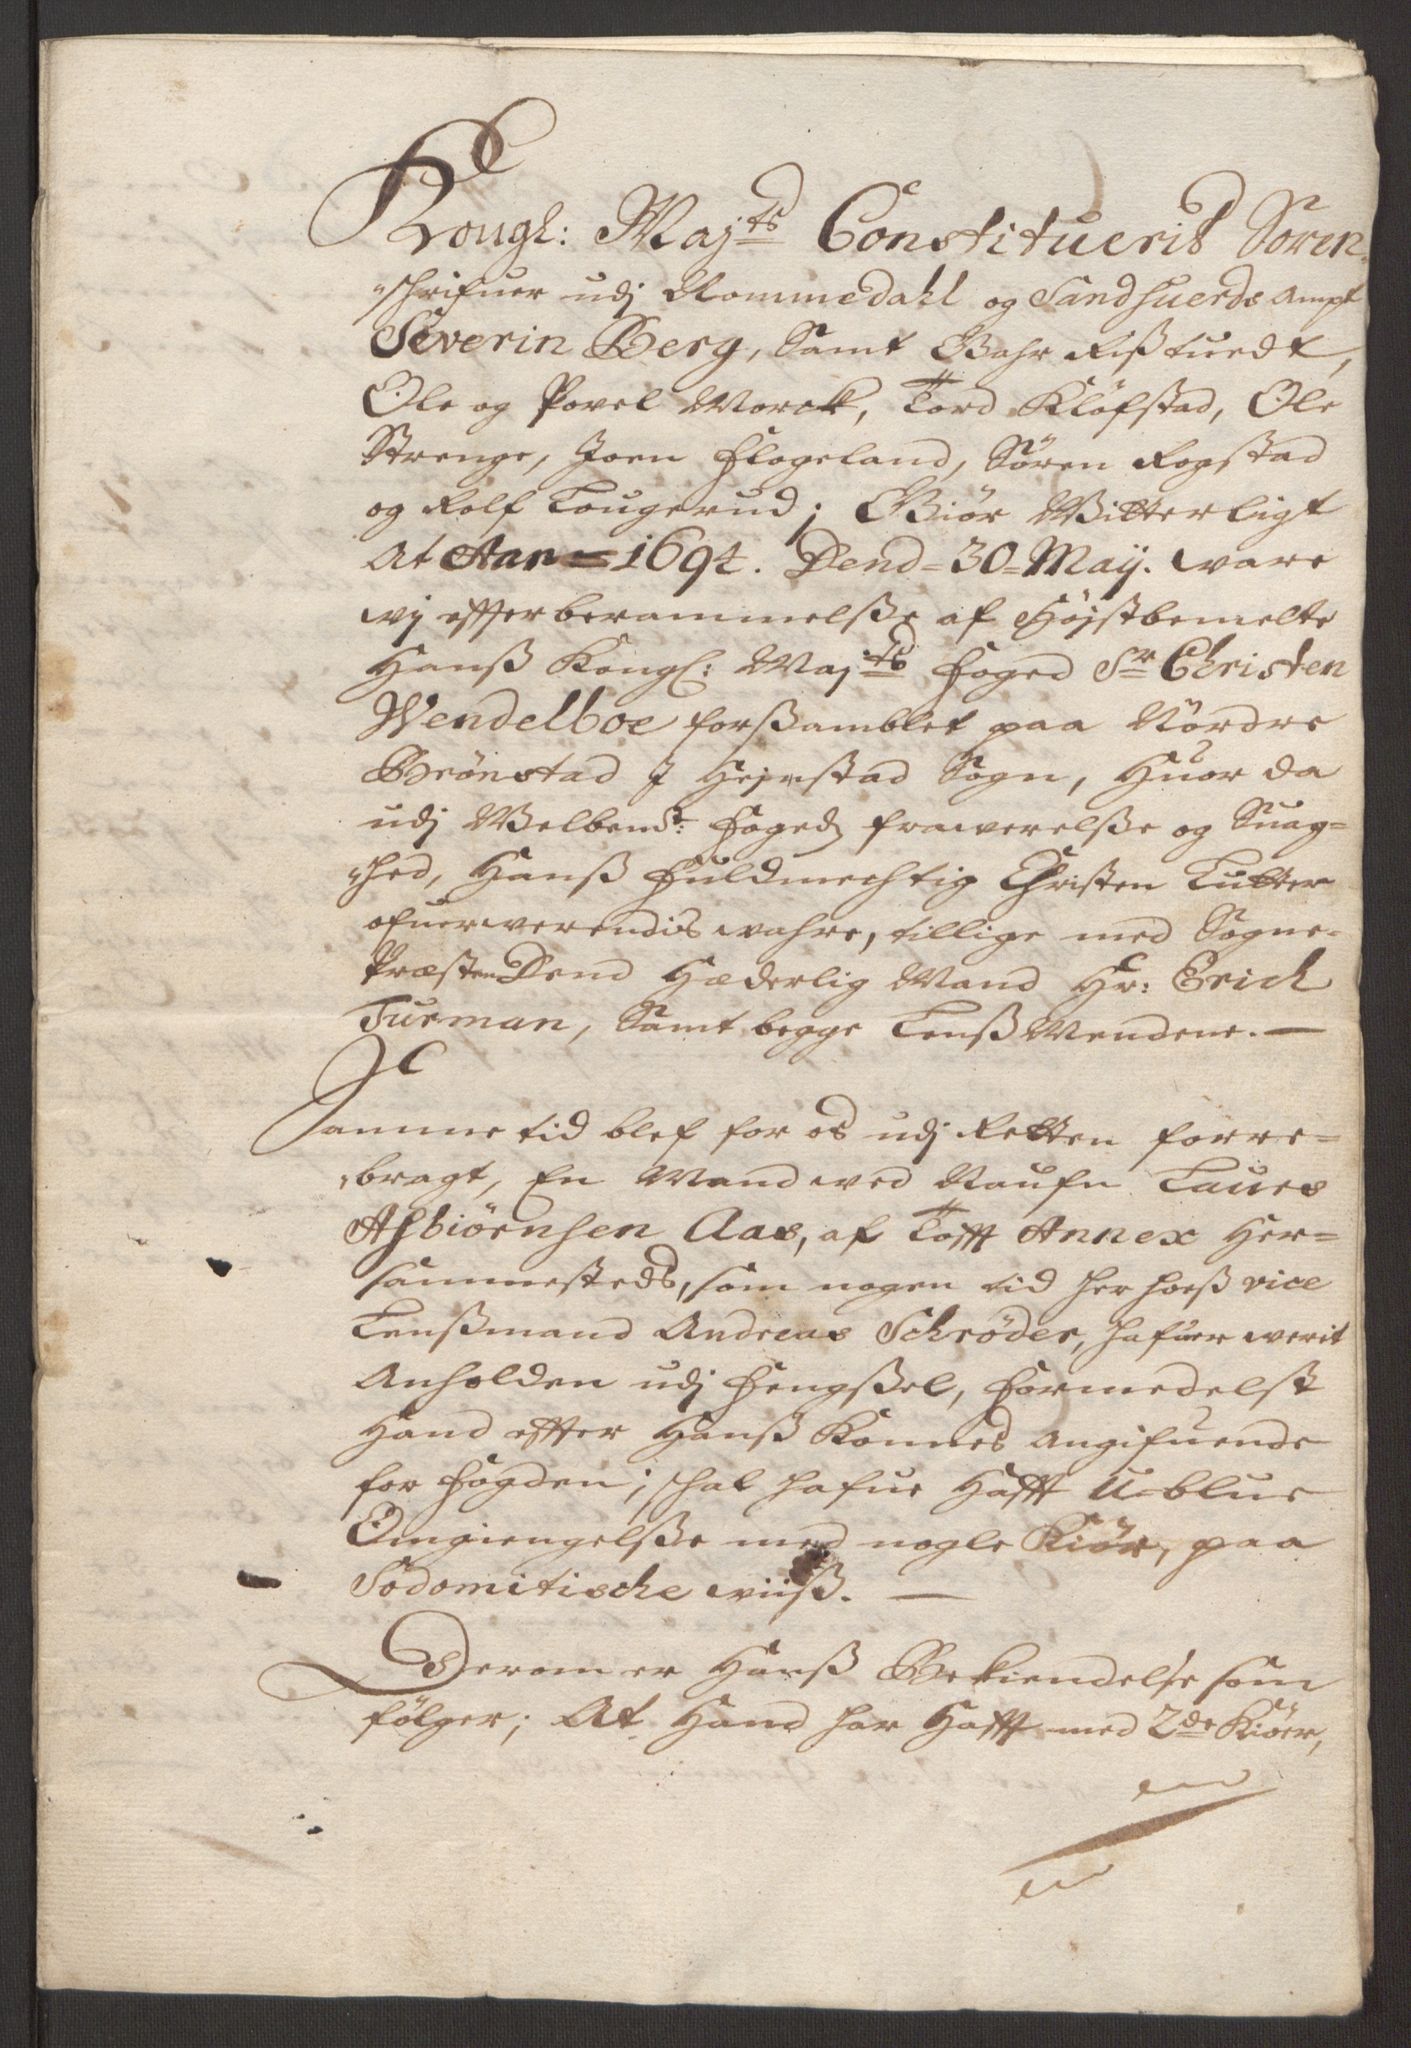 Kongl: Majts Constituerit Soren-
schrifuer udj Nommedahl og Sandhuerds Ampt
Severin Berg, Samt Bahr Ristuedt,
Ole og Povel Morck, Tord Kløfstad, Ole
Strenge, Joen Flogeland, Søren Rogstad
og Rolf Lougerud; Giør Witterligt
At Aar = 1694. Dend = 30 = Maij. ware
wj effter berammelsße af Højstbemelte
Hanß Kongl: Majts Foged Sr Christen
Wendelboe forßamblet paa Nordre
Brønstad J Hejestad Sogn, Huor da
udj Welbemte: Fogeds frawerelsße og Suag-
hed, Hanß Fuldmechtig Christen Lutter
ofuerwerendis wahre, tillige med Sogne-
Præsten Dend Hæderlig Mand Hr: Erich
Turman, Samt begge Lenß Mendene. —
Samme tid blef for os udj Retten forre-
bragt, En Mand wed Naufn Laues
Asbiørnsen Aas, af Tofft Annex Her-
sammesteds, som nogen tid her hoeß vice
Lenßmand Andreas Schrøder, hafuer werit
Anholden udj Fengsßel, Formedelst
Hand effter Hanß Konnes Angifuende
for Fogden; schal hafue Hafft U-blue
Omgiengelsße med nogle Kiør, paa
Sodomitische wiiß. —
Derom er Hanß Bekiendelse som
følger; At Hand har Hafft med 2de Kiøer,